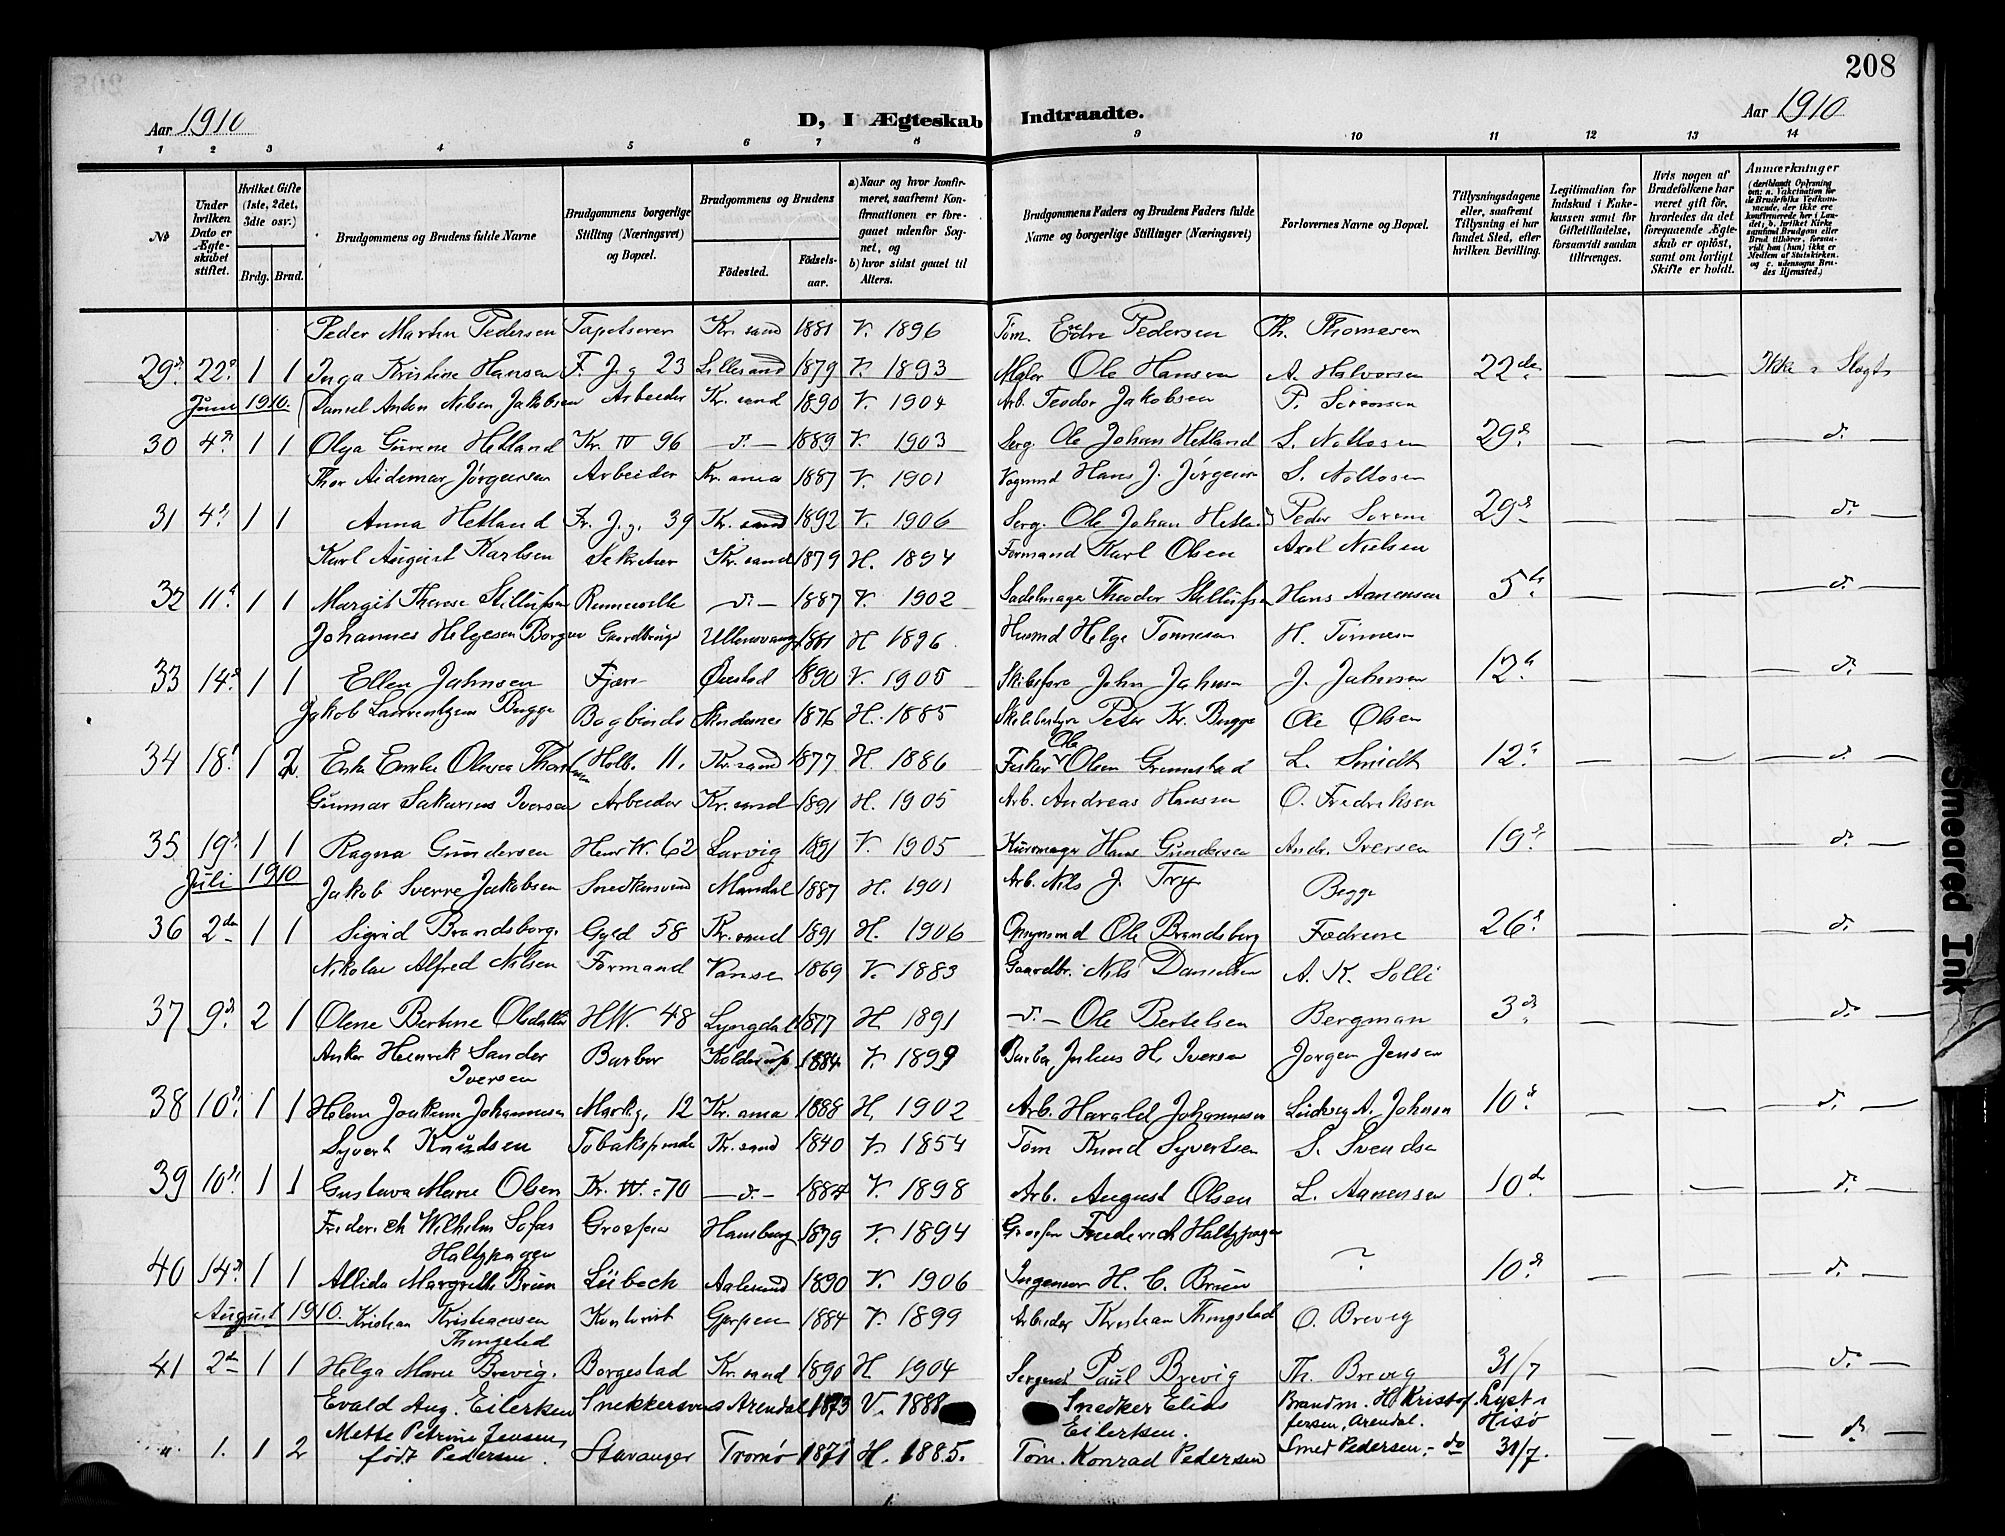 208
Aar 1910 D, I Ægteskab Indtraadte. Aar 1910
1 2 3 4 5 6 7 8 9 10 11 12 13 14
№
Under hvilken Dato er Ægteskabet stiftet.
Hvilket Gifte (1ste, 2det, 3die osv.)
Brdg. Brud.
Brudgommens og Brudens fulde Navne
Brudgommens borgerlige Stilling (Næringsvei) og Bopæl.
Brudgommens og Brudens
Födested. Födsels-aar.
a) Naar og hvor konfirmeret, saafremt Konfirmationen er foregaaet udenfor Sognet, og
b) hvor sidst gaaet til Alters.
Brudgommens Faders og Brudens Faders fulde Navne og borgerlige Stillinger (Næringsvei)
Forlovernes Navne og Bopæl.
Tillysningsdagene eller, saafremt Tillysning ei har fundet Sted, efter hvilken Bevilling.
Legitimation for Indskud i Enkekassen samt for Giftetilladelse, forsaavidt saadan tiltrænges.
Hvis nogen af Brudefolkene har været gift för, hvorledes da det foregaaende Ægteskab er oplöst, samt om lovligt Skifte er holdt.
Anmærkninger
Peder Martin Pedersen Tapetserer Kr.sand 1881 V. 1896 Tøm. Pedersen Th. Thomesen
29 22 1 1 Inga Kristine Hansen F. J.g 23 Lillesand 1879 V. 1893 Maler Ole Hansen A. Halvorsen 22de — — Ikke i Slægt
Juni 1910. Daniel Anton Nilsen Jakobsen Arbeider Kr.sand 1890 V. 1904 Arb. Teodor Jakobsen P. Sørensen
30 4 1 1 Olga Gurine Hetland Kr. IV 96 — d. — 1889 V. 1903 Serg. Ole Johan Hetland S. Noltosen 29 — — d.
Thor Aidemar Jørgensen Arbeider Kr.ania 1887 V. 1901 Vognmd Hans J. Jørgensen S. Noltosen
31 4 1 1 Anna Hetland Fr. J.g. 39 Kr.sand 1892 V. 1906 Serg. Ole Johan Hetland Peder 29 — — d.
Karl August Karlsen Sekretær Kr.sand 1879 H. 1894 Formand Karl Olsen Axel Nielsen
32 11 1 1 Margit Therese Stillufsen — d. — 1887 V. 1902 Sadelmager Theodor Stillufsen Hans Aanensen 5 — — d.
Johannes Helgesen Borgen Gaardbruge Ullensvang 1881 H. 1896 Husmd Helge Tønnesen H. Tønnesen
33 14 1 1 Ellen Jahnsen Fjære Øiestad 1890 V. 1905 Skibsfører John Jahnsen J. Jahnsen 12 — — d.
Jakob Laurentzen Bugge Bogbinder Skudesnes 1876 H. 1885 Peter Kr. Bugge Ole Olsen
34 18 1 2 Emilie Olevia Holb. 11. Kr.sand 1877 H. 1886 Fisker Ole Olsen Grimstad L. Smidt 12 — — d.
Gunnar Sakarius Iversen Arbeider Kr.sand 1891 H. 1905 Arb. Andreas Hansen O. Fredriksen
35 19 1 1 Ragna Gundersen Henr W. 62 Larvig 1891 V. 1905 Hans Gundersen Andr. Iversen 19 — — d.
Juli 1910 Jakob Sverre Jakobsen Snedkersvend Mandal 1887 H. 1901 Arb. Nils J. Try Begge
36 2den 1 1 Sigrid Brandsborg. Gyld 58 Kr.sand 1891 H. 1906 Opsynsmd Ole Brandsberg Fædrene 26 — — d.
Nikolai Alfred Nilsen Formand Vanse 1869 V. 1883 Gaardbr. Nils Danielsen A. K. Solli
37 9 2 1 Olene Bertine H.W. 48 Lyngdal 1877 H. 1891 — d. — Ole Bertelsen Bergman 3 — — d.
Anker Henrik Sander Iversen Barber 1884 V. 1899 Barber Julius H. Iversen Jørgen Jensen
38 10 1 1 Johannesen Markg. 12 Kr.ania 1888 H. 1902 Arb. Harald Johannesen Ludvig A. Johnsen 10 — — d.
Syvert Knudsen Tobakspinder Kr.sand 1840 V. 1854 Tøm Knud Syvertsen S. Svendsen
39 10 1 1 Gustava Marie Olsen Kr. IV. 70 — d. — 1884 V. 1898 Arb. August Olsen L. Aanensen 10 — — d.
Friderich Wilhelm Sofus Haltzpagen Hamburg 1879 V. 1894 Friederich Haltzpagen
40 14 1 1 Allida Margrethe Brun Lübeck Aalesund 1890 V. 1906 Ingeniør H. C. Brun ? 10 — — d.
August 1910. Kristian Kristiansen Thingstad Kontorist Gjerpen 1884 V. 1899 Arbeider Kristian Thingstad O. Brevig
41 2den 1 1 Helga Marie Brevig. Borgestad Kr.sand 1890 H 1904 Sergeant Paul Brevig Th. Brevig 31/7 — — d.
Evald Aug. Eilerksen Snekkersvend Arendal 1873 V. 1888 Snedker Elias Eilerksen. Brandm. H. Kristoffersen, Arendal. Lyst i Hisø
" 1. 1 2 Mette Petrine Jensen, født Pedersen. Stavanger Tromø 1871 H. 1885. Tøm. Konrad Pedersen Smed Pedersen, - do 31/7. — — d.
Smeared Ink